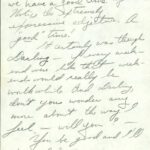 we have a good time.
Notice the extremely
expressive adjective. A
good time!
It certainly was though
Darling. 
end were like that week-
ends would really be
worthwhile and Darling
don't you wonder any
more about the way I
feel — will you?
You be good and I'll